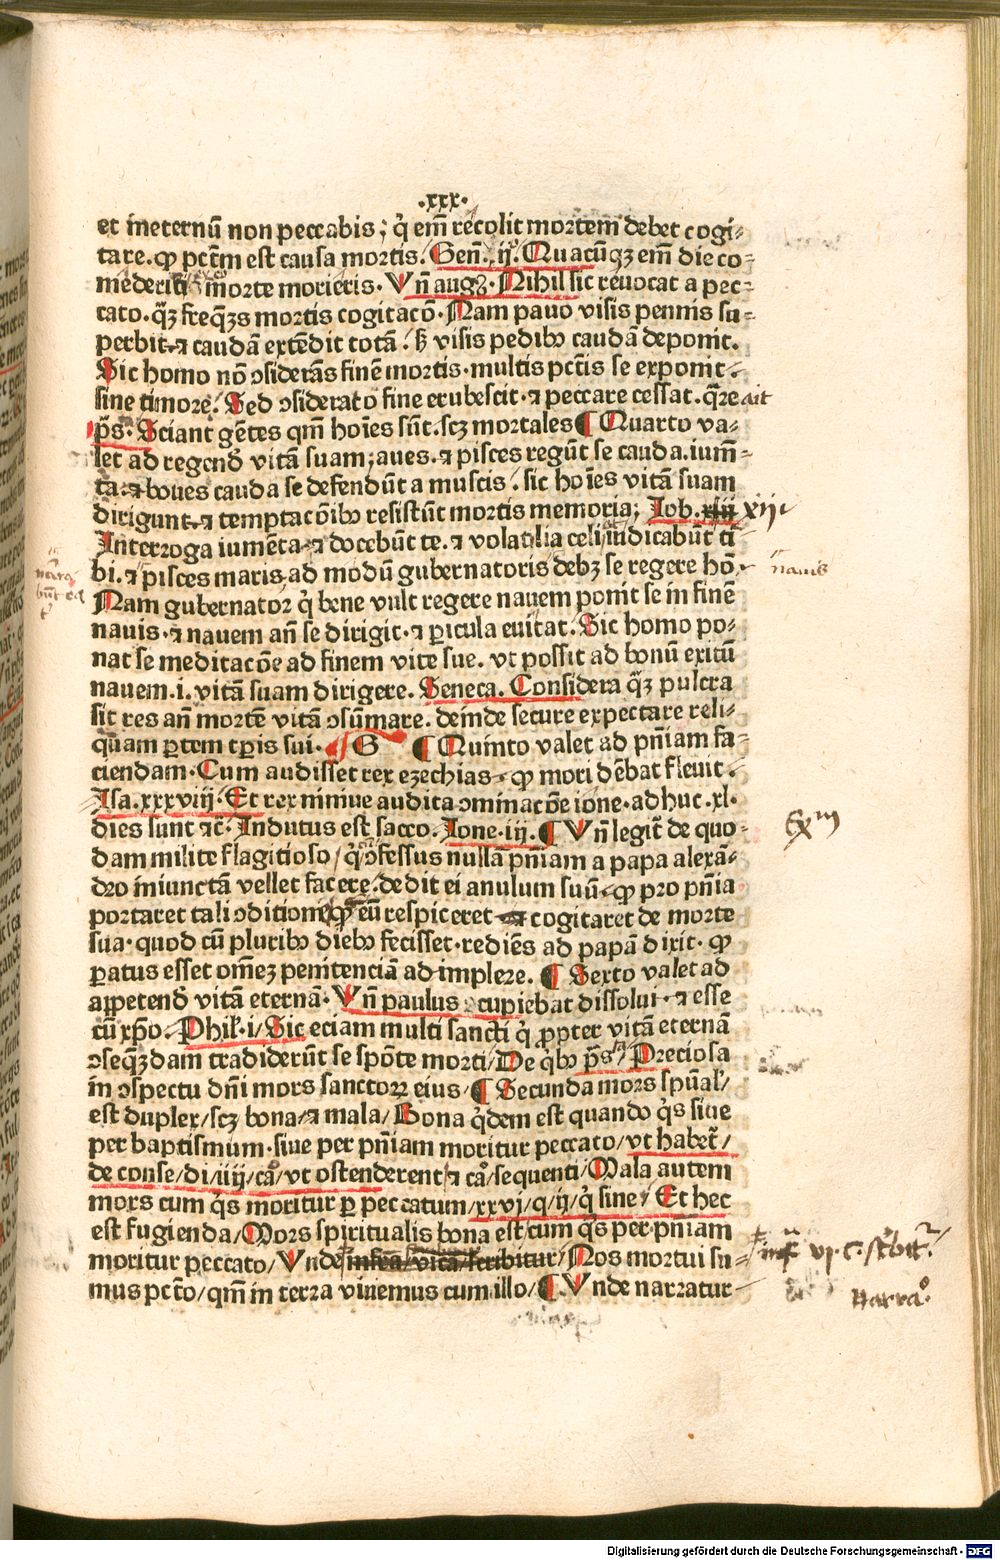 ·xxx·
et ineternū non peccabis; q̇ em̄ recolit mortem debet cogi⸗
tare. ꝙ pctm̄ est causa mortis. Gen̄. ij°. Quacūqꝫ em̄ die co⸗
mederitis morte morieris. Vn̄ augꝰ. Nihil sic reuocat a pec⸗
cato. q̄ꝫ freq̄ꝫs mortis cogitacō. Nam pauo visis pennis su⸗
perbit. ⁊ caudā extēdit totā. sꝫ visis pedibꝰ caudā deponit.
Sic homo nō ꝯsiderās finē mortis. multis pctīs se exponit.
sine timore. Sed ꝯsiderato fine erubescit. ⁊ peccare cessat. q̄re ait
p̄s. Sciant gētes qm̄ hoīes sūt. scꝫ mortales ¶ Quarto va⸗
let ad regendū vitā suam; aues. ⁊ pisces regūt se cauda. ium̄⸗
ta. ⁊ boues cauda se defendūt a muscis. sic hoīes vitā suam
dirigunt. ⁊ temptacōibꝰ resistūt mortis memoria; Iob. xij
Interroga iumēta. ⁊ docebūt te. ⁊ volatilia celi indicabūt ti⸗
bi. ⁊ pisces maris. ad modū gubernatoris debꝫ se regere hō.
nauis
Nam gubernator q̇ bene vult regere nauem ponit se in finē
nauis. ⁊ nauem an̄ se dirigit. ⁊ ꝑicula euitat. Sic homo po⸗
nat se meditacōe ad finem vite sue. vt possit ad bonū exitū
nauem .i. vitā suam dirigere. Seneca. Considera q̄ꝫ pulcra
sit res an̄ mortē vitā ꝯsūmare. deinde secure expectare reli⸗
quam ꝑtem tꝑis sui. G ¶ Quinto valet ad pn̄iam fa⸗
ciendam. Cum audisset rex ezechias. ꝙ mori debat fleuit.
Isa. xxxviij. Et rex niniue audita ꝯminacōe ione. adhuc .xl.
dies sunt ⁊c̄. Indutus est sacco. Ione. iij. ¶ Vn̄ legit̄ de quo⸗
dam milite flagitioso/ q̇ ꝯfessus nullā pn̄iam a papa alexā⸗
dro iniunctā vellet facere. dedit ei anulum suū. ꝙ pro pn̄ia
portaret tali ꝯditione ꝙ eū respiceret ⁊ cogitaret de morte
sua. quod cū pluribꝰ diebꝰ fecisset. rediēs ad papā dixit. ꝙ
ꝑatus esset omēꝫ penitenciā adimplere. ¶ Sexto valet ad
appetendū vitā eternā. Vn̄ paulus cupiebat dissolui. ⁊ esse
cū xp̄o. Phil̄. i/ Sic eciam multi sancti q̇ ꝓpter vitā eternā
ꝯseq̄ꝫdam tradiderūt se spōte morti/ De q̇bꝰ p̄s/ Preciosa
in ꝯspectu dn̄i mors sanctoꝝ eius/ ¶ Secunda mors spūal̄/
est duplex/ scꝫ bona/ ⁊ mala/ Bona q̇dem est quando q̇s siue
per baptismum. siue per pn̄iam moritur peccato/ vt habet̄/
de conse/ di/ iiij/ ca°/ vt ostenderent/ ⁊ ca°/ sequenti/ Mala autem
mors cum q̇s moritur ꝑ peccatum/ xxvj/ q/ ij/ q̇ sine/ Et hec
est fugienda/ Mors spiritualis bona est/ cum q̇s per pn̄iam
moritur peccato/ Vnde Nos mortui su⸗
mus pctō/ qm̄ in terra viuemus cum illo/ ¶ Vnde narratur
Narrā°.
Digitalisierung gefördert durch die Deutsche Forschungsgemeinschaft - DFG